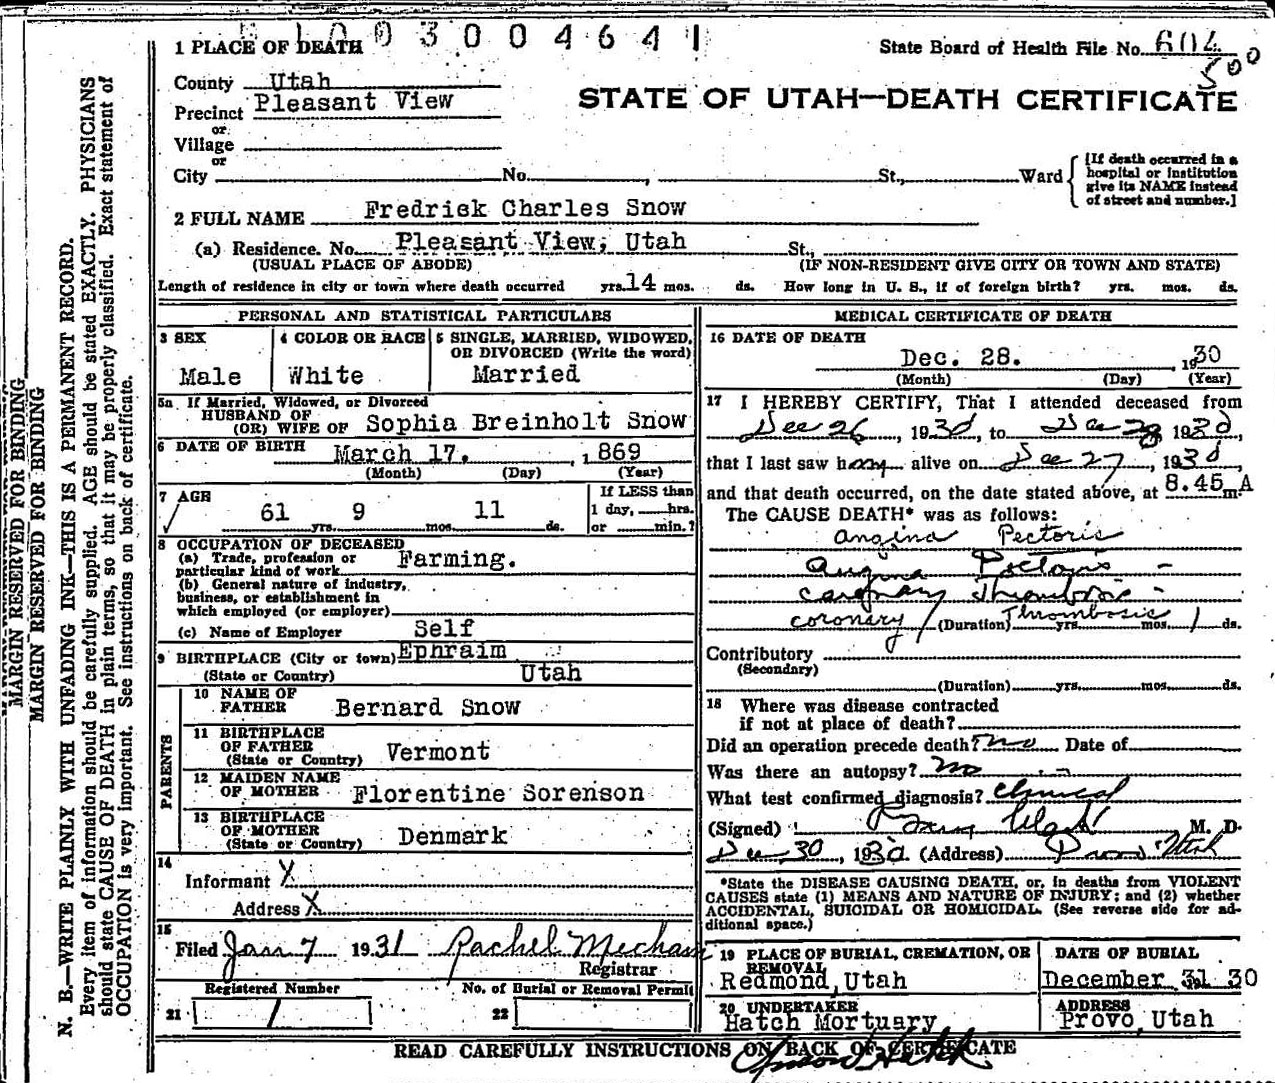 1003004641
1 PLACE OF DEATH
State Board of Health File No. 604
500
County Utah
Precinct Pleasant View
or
Village
or
City No. , St., Ward
[If death occurred in a
hospital or institution
give its NAME instead
of street and number.]
STATE OF UTAH—DEATH CERTIFICATE
2 FULL NAME Fredrick Charles Snow
(a) Residence. No. Pleasant View, Utah St.,
(USUAL PLACE OF ABODE) (IF NON-RESIDENT GIVE CITY OR TOWN AND STATE)
Length of residence in city or town where death occurred yrs. 14 mos. ds. How long in U. S., if of foreign birth? yrs. mos. ds.
PERSONAL AND STATISTICAL PARTICULARS
3 SEX
Male
4 COLOR OR RACE
White
5 SINGLE, MARRIED, WIDOWED,
OR DIVORCED (Write the word)
Married
5a If Married, Widowed, or Divorced
HUSBAND OF
(OR) WIFE OF Sophia Breinholt Snow
6 DATE OF BIRTH March 17. , 1869
(Month) (Day) (Year)
7 AGE
61 yrs. 9 mos. 11 ds.
If LESS than
1 day, hrs.
or min.?
8 OCCUPATION OF DECEASED
(a) Trade, profession or
particular kind of work Farming.
(b) General nature of industry,
business, or establishment in
which employed (or employer)
(c) Name of Employer Self
9 BIRTHPLACE (City or town) Ephraim
(State or Country) Utah
PARENTS
10 NAME OF
FATHER Bernard Snow
11 BIRTHPLACE
OF FATHER
(State or Country) Vermont
12 MAIDEN NAME
OF MOTHER Florentine Sorenson
13 BIRTHPLACE
OF MOTHER
(State or Country) Denmark
14
Informant X
Address X
15
Filed Jan 7 1931 Rachel Mecham
Registrar
Registered Number No. of Burial or Removal Permit
21 1 22
MEDICAL CERTIFICATE OF DEATH
16 DATE OF DEATH
Dec. 28. , 1930
(Month) (Day) (Year)
17 I HEREBY CERTIFY, That I attended deceased from
Dec 26, 1930, to Dec 28 1930,
that I last saw him alive on Dec 27, 1930
and that death occurred, on the date stated above, at 8.45 m. A
The CAUSE DEATH* was as follows:
Angina Pectoris
Angina Pectoris -
Coronary Thrombosis -
coronary Thrombosis
(Duration) yrs. mos. 1 ds.
Contributory
(Secondary)
(Duration) yrs. mos. ds.
18 Where was disease contracted
if not at place of death?
Did an operation precede death? no Date of
Was there an autopsy? no
What test confirmed diagnosis? Clinical
(Signed) M. D.
Dec 30, 1930 (Address) Provo Utah
*State the DISEASE CAUSING DEATH, or, in deaths from VIOLENT
CAUSES state (1) MEANS AND NATURE OF INJURY; and (2) whether
ACCIDENTAL, SUICIDAL OR HOMICIDAL. (See reverse side for ad-
ditional space.)
19 PLACE OF BURIAL, CREMATION, OR
REMOVAL
Redmond, Utah
DATE OF BURIAL
December 31 30
20 UNDERTAKER
Hatch Mortuary
ADDRESS
Provo, Utah
READ CAREFULLY INSTRUCTIONS ON BACK OF CERTIFICATE
MARGIN RESERVED FOR BINDING
MARGIN RESERVED FOR BINDING
N. B.—WRITE PLAINLY WITH UNFADING INK—THIS IS A PERMANENT RECORD.
Every item of information should be carefully supplied. AGE should be stated EXACTLY. PHYSICIANS
should state CAUSE OF DEATH in plain terms, so that it may be properly classified. Exact statement of
OCCUPATION is very important. See instructions on back of certificate.